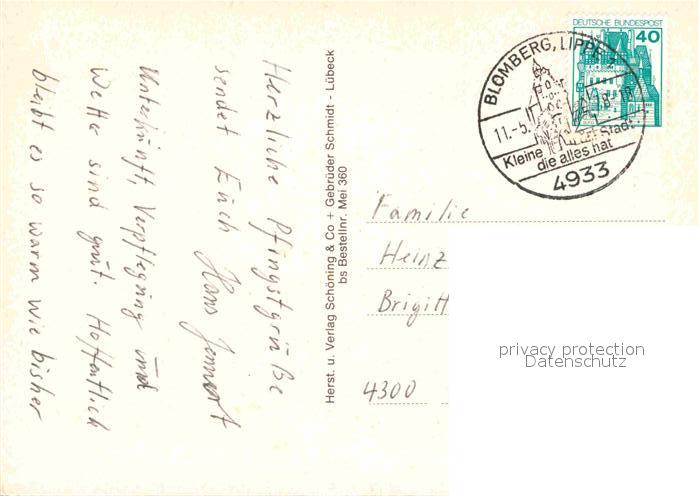 Herzliche Pfingstgrüße
sendet Euch Hans
Unterkünft, Verpflegung und
Wetter sind gut. Hoffentlich
bleibt es so warm wie bisher
Herst. u. Verlag Schöning & Co + Gebrüder Schmidt - Lübeck
bs Bestellnr. Mei 360
DEUTSCHE BUNDESPOST
40
BLOMBERG, LIPPE
11.-5.
-18
Kleine Stadt
die alles hat
4933
Familie
Heinz
Brigitt
4300
privacy protection
Datenschutz